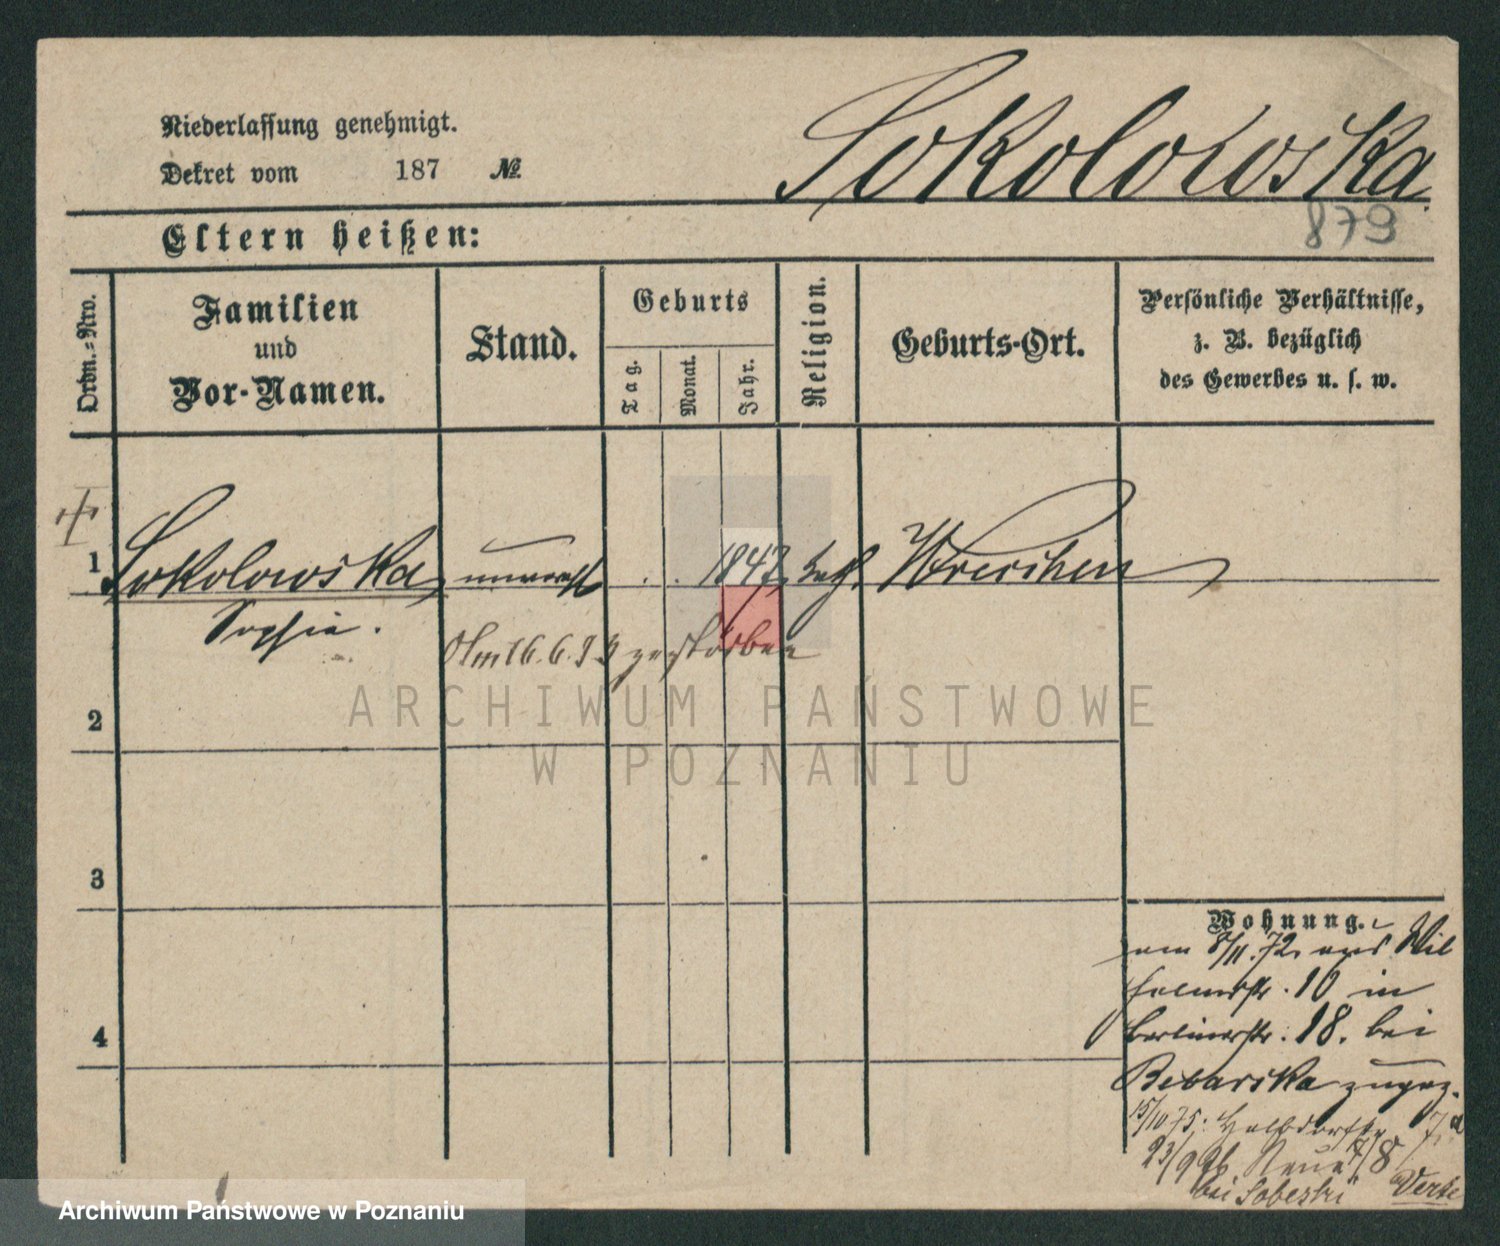 Niederlassung genehmigt.
Dekret vom 187 №
Sokolowska
879
Eltern heißen:
Ordn.-Nro.
Familien
und
Vor-Namen.
Stand.
Geburts
Tag.
Monat.
Jahr.
Religion.
Geburts-Ort.
Persönliche Verhältnisse,
z. B. bezüglich
des Gewerbes u. s. w.
1 Sokolowska unvereh . . 1847 kath. Wreschen
Sophie.
Am 16.6.93 gestorben
2
ARCHIWUM PAŃSTWOWE
W POZNANIU
3
4
Wohnung.
am 8/11.72 aus Wil
helmstr. 10 in
Berlinerstr. 18. bei
Bebarska zugez.
15/10 75: Halbdorfstr 7.
23/9 Neue 7/8
bei Sobeski
Archiwum Państwowe w Poznaniu